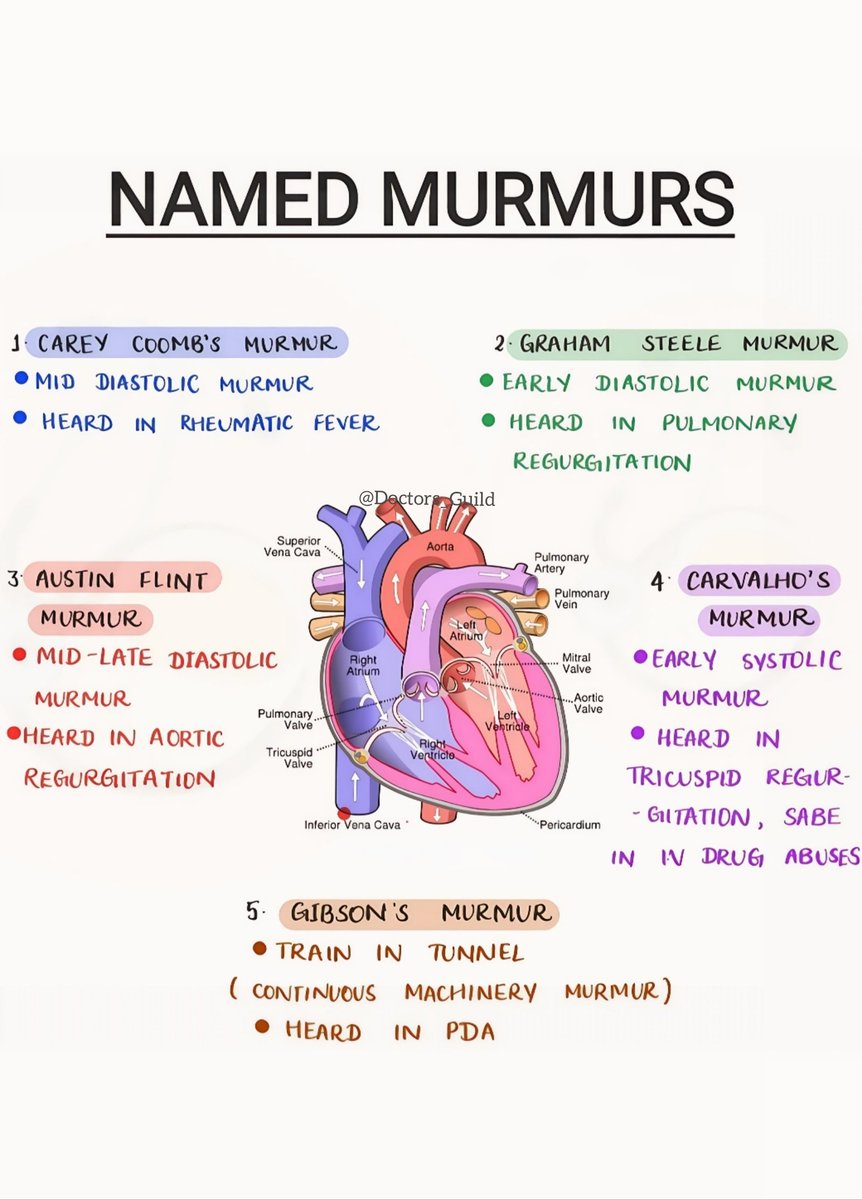 NAMED MURMURS
1. CAREY COOMB'S MURMUR
MID DIASTOLIC MURMUR
HEARD IN RHEUMATIC FEVER
2. GRAHAM STEELE MURMUR
EARLY DIASTOLIC MURMUR
HEARD IN PULMONARY
REGURGITATION
@Doctors_Guild
3. AUSTIN FLINT
MURMUR
MID-LATE DIASTOLIC
MURMUR
HEARD IN AORTIC
REGURGITATION
Superior
Vena Cava
Aorta
Pulmonary
Artery
Pulmonary
Vein
Left
Atrium
Right
Atrium
Mitral
Valve
Aortic
Valve
Pulmonary
Valve
Left
Ventricle
Tricuspid
Valve
Right
Ventricle
Inferior Vena Cava
Pericardium
4. CARVALHO'S
MURMUR
EARLY SYSTOLIC
MURMUR
HEARD IN
TRICUSPID REGUR-
-GITATION, SABE
IN I.V DRUG ABUSES
5. GIBSON'S MURMUR
TRAIN IN TUNNEL
(CONTINUOUS MACHINERY MURMUR)
HEARD IN PDA